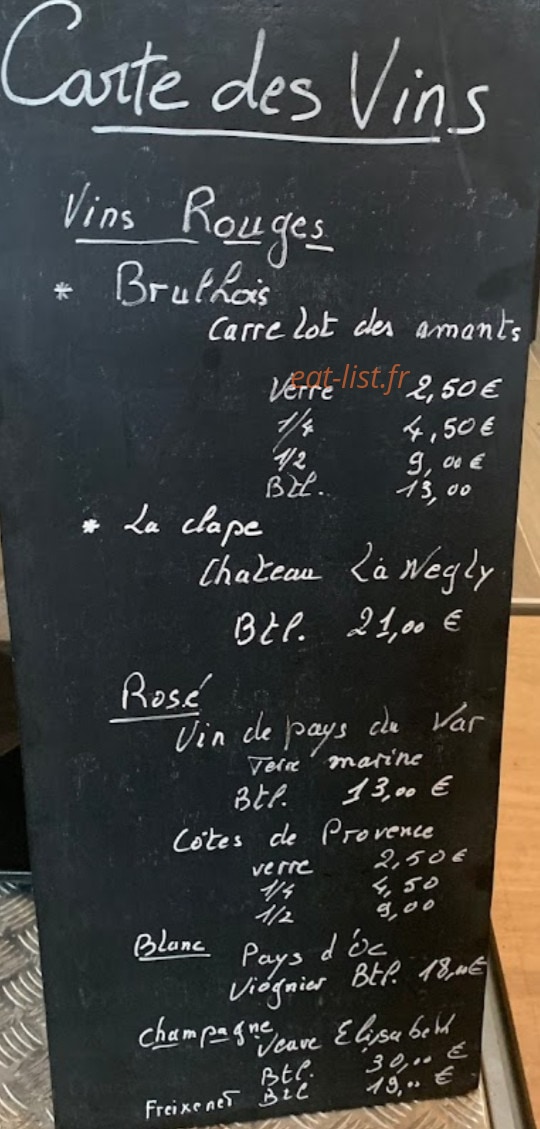 Carte des Vins
Vins Rouges
* Brulhois
Carrelot des amants
eat-list.fr
Verre 2,50 €
1/4 4,50 €
1/2 9,00 €
Btl. 13,00
* La clape
Chateau La Negly
Btl. 21,00 €
Rosé
Vin de pays du Var
Terre marine
Btl. 13,00 €
Côtes de Provence
verre 2,50 €
1/4 4,50
1/2 9,00
Blanc Pays d'Oc
Viognier Btl. 18,00 €
Champagne Veuve Elisabeth
Btl. 30,00 €
Freixenet Btl 19,00 €